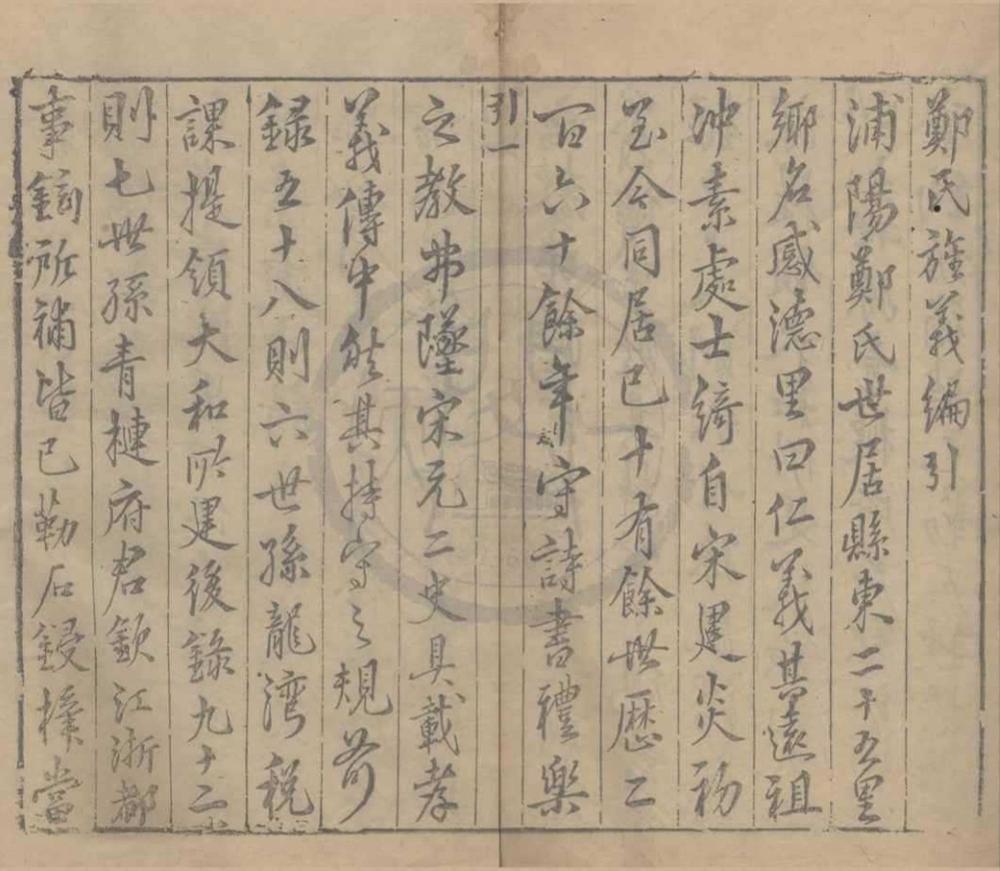 鄭氏旌義編引
浦陽鄭氏世居縣東二十五里
鄉名感德里曰仁義其遠祖
冲素處士綺自宋建炎初
至今同居已十有餘世歷二
百六十餘年守詩書禮樂
引一
之教弗墜宋元二史具載孝
義傳中然其持守之規前
錄五十八則六世孫龍灣稅
課提領大和所建後錄九十二
則七世孫青槤府君欽江浙都
事鉉所補皆已勒石鋟榟當